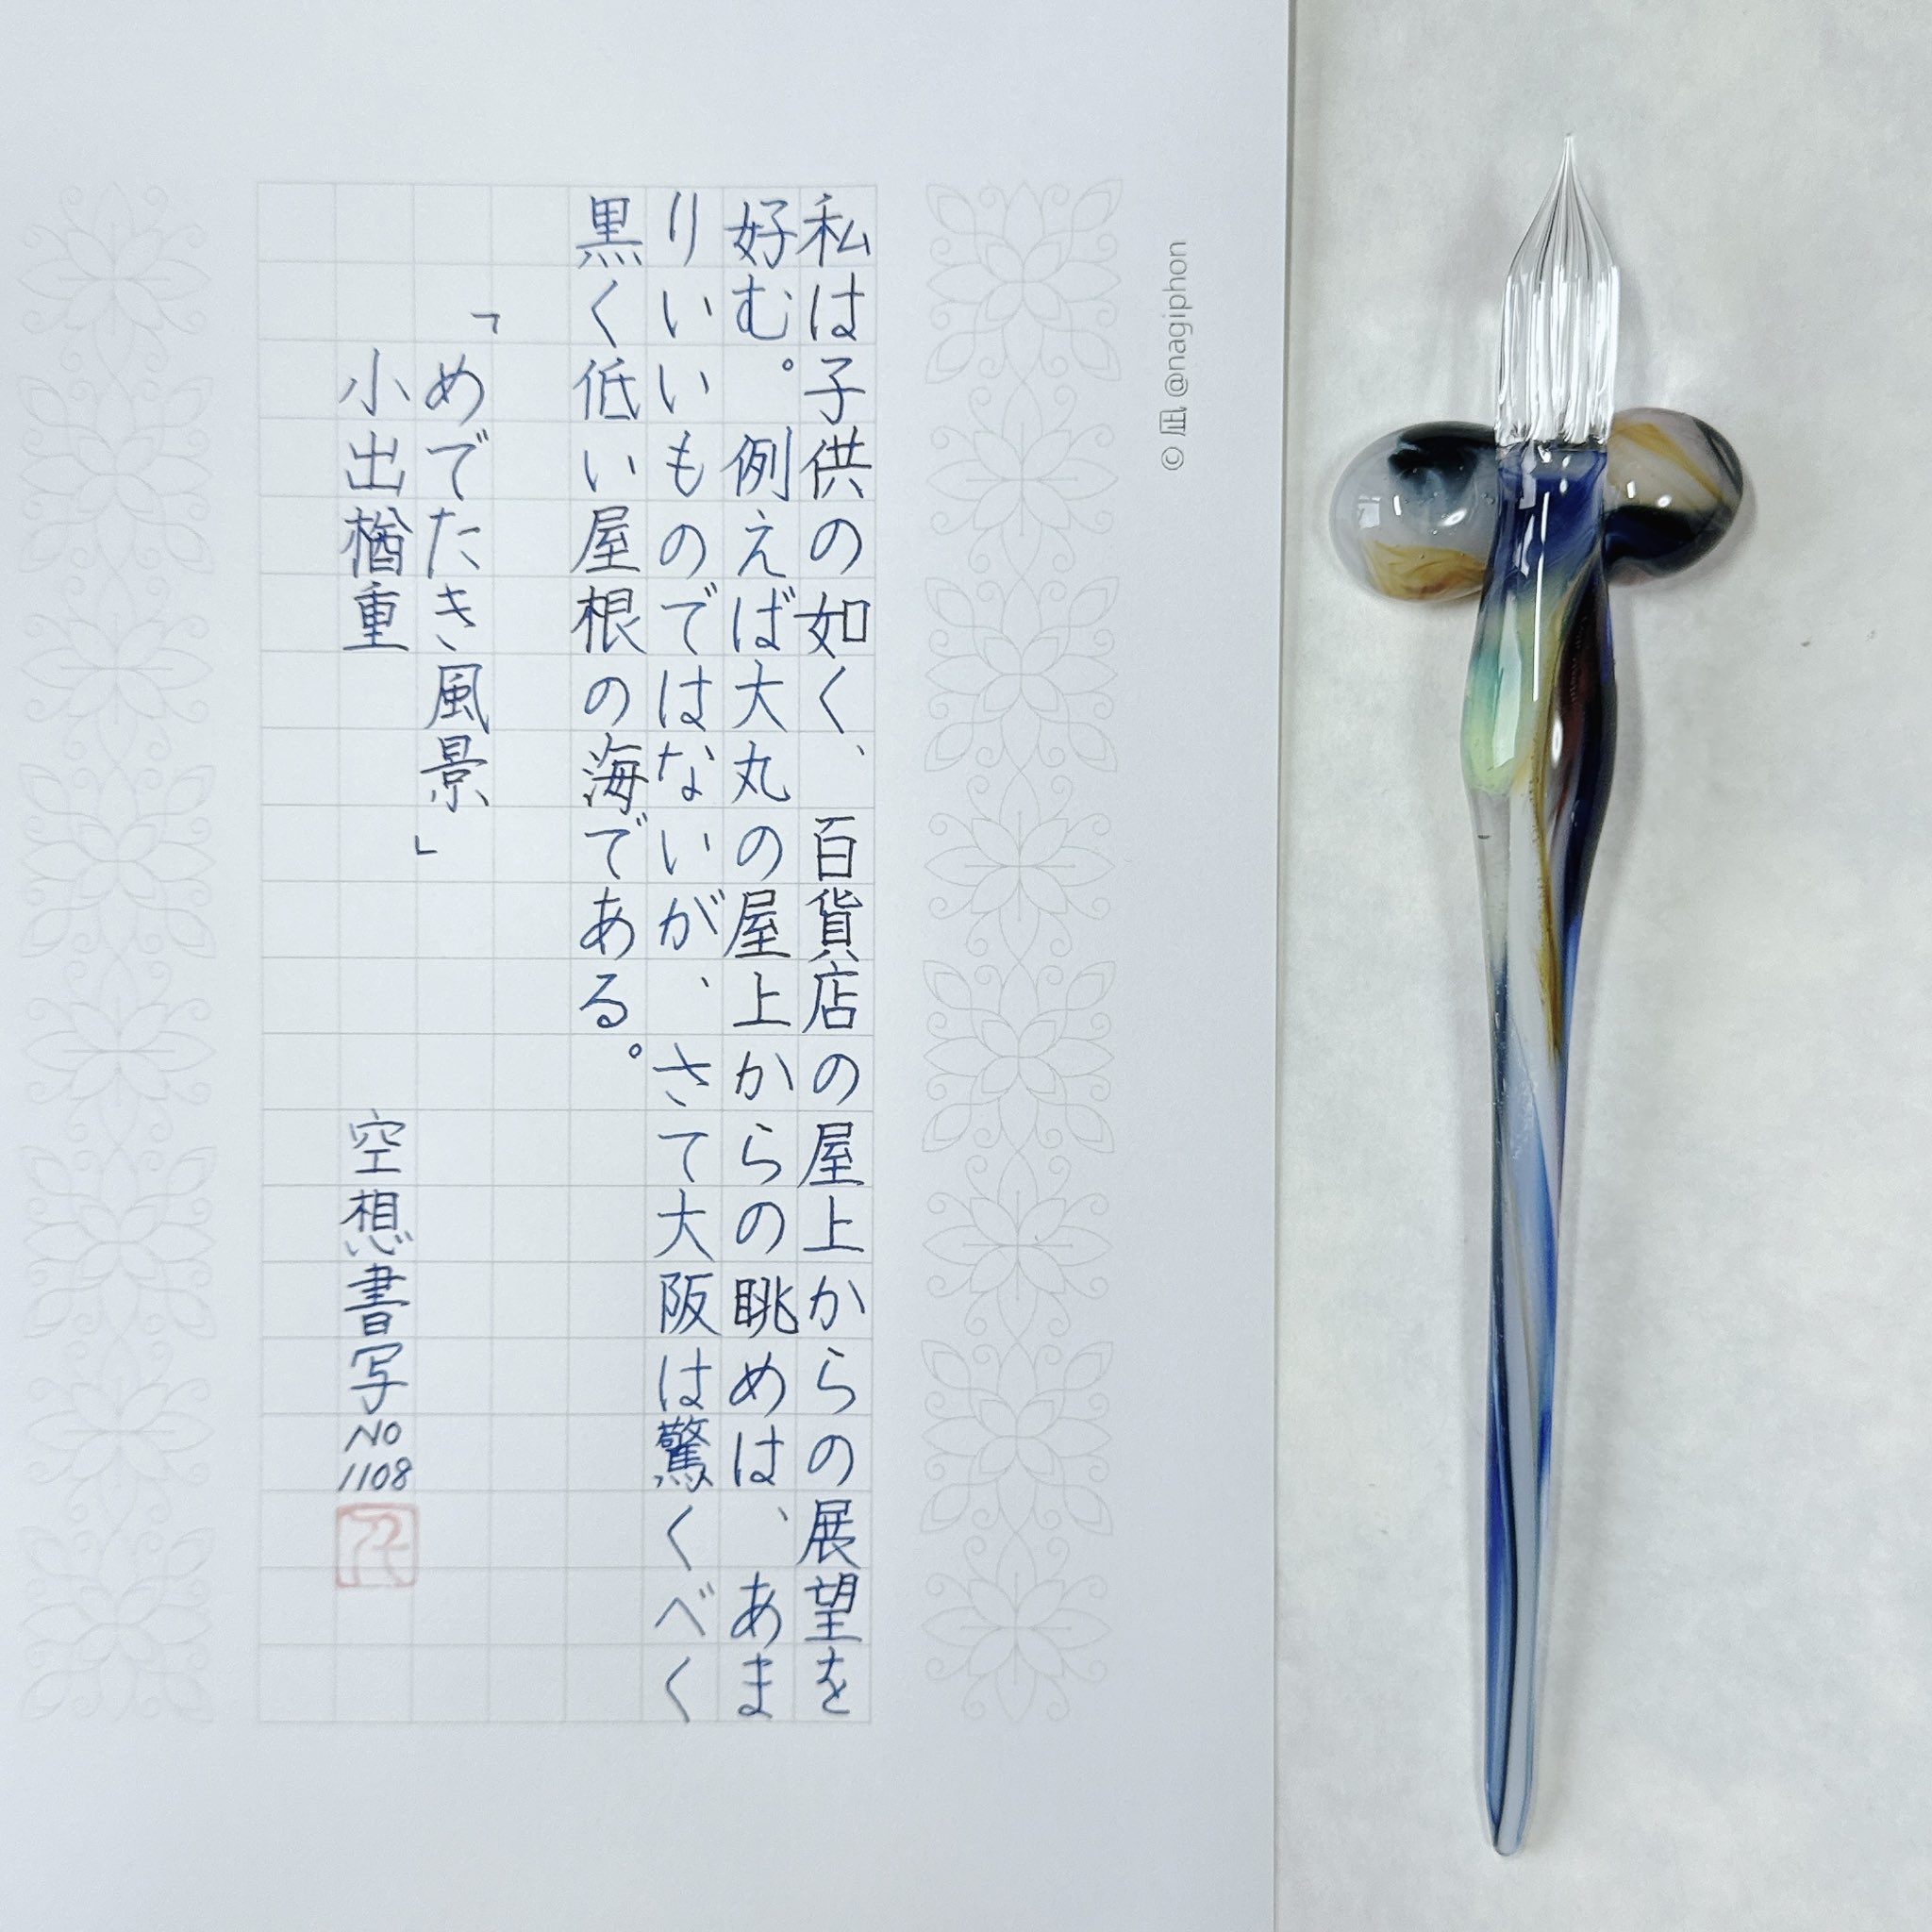 私は子供の如く、百貨店の屋上からの展望を
好む。例えば大丸の屋上からの眺めは、あま
りいいものではないが、さて大阪は驚くべく
黒く低い屋根の海である。
「めでたき風景」
小出楢重 空想書写NO1108
© 凪 @nagiphon